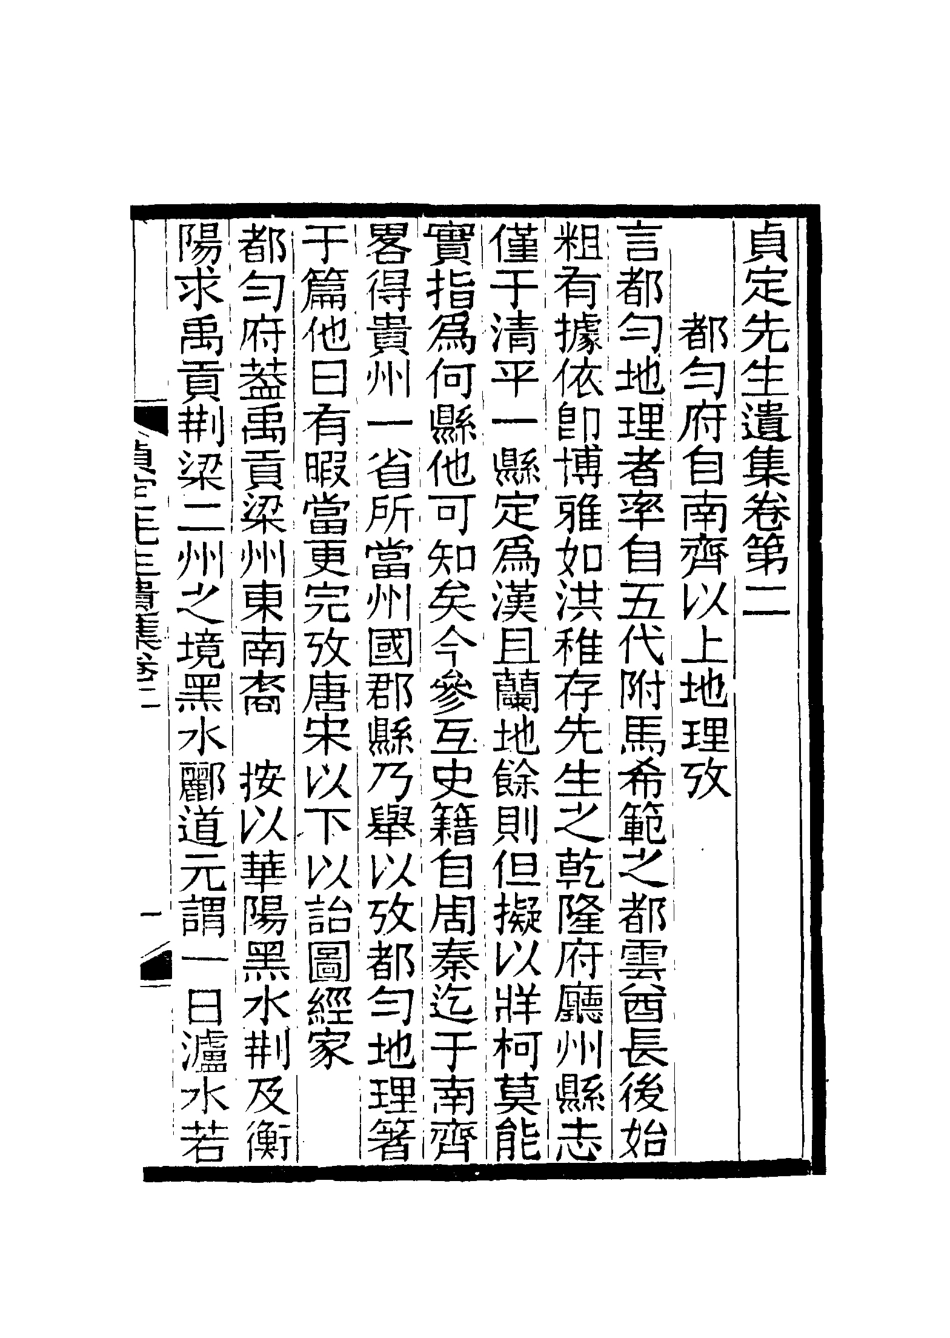 貞定先生遺集卷第二
都匀府自南齊以上地理攷
言都匀地理者率自五代附馬希範之都雲酋長後始
粗有據依卽博雅如洪稚存先生之乾隆府廳州縣志
僅于清平一縣定爲漢且蘭地餘則但擬以牂柯莫能
實指爲何縣他可知矣今參互史籍自周秦迄于南齊
畧得貴州一省所當州國郡縣乃舉以攷都匀地理箸
于篇他日有暇當更完攷唐宋以下以詒圖經家
都匀府葢禹貢梁州東南裔　按以華陽黑水荆及衡
陽求禹貢荆梁二州之境黑水酈道元謂一曰瀘水若
貞定先生遺集卷二
一